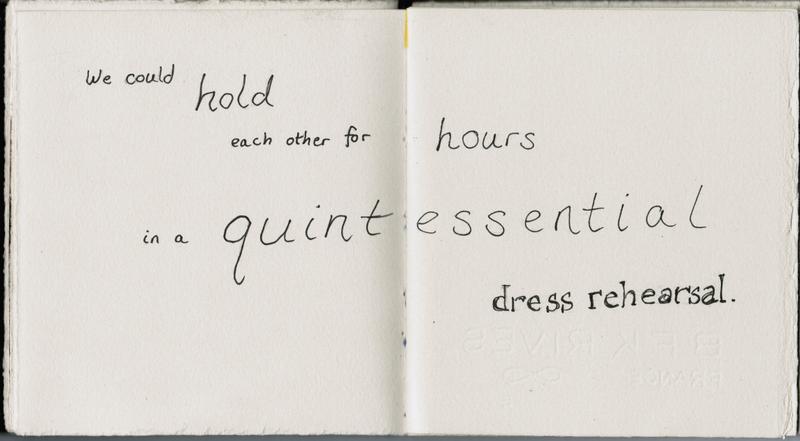 We could
hold
each other for hours
in a quintessential
dress rehearsal.
BFK RIVES
FRANCE